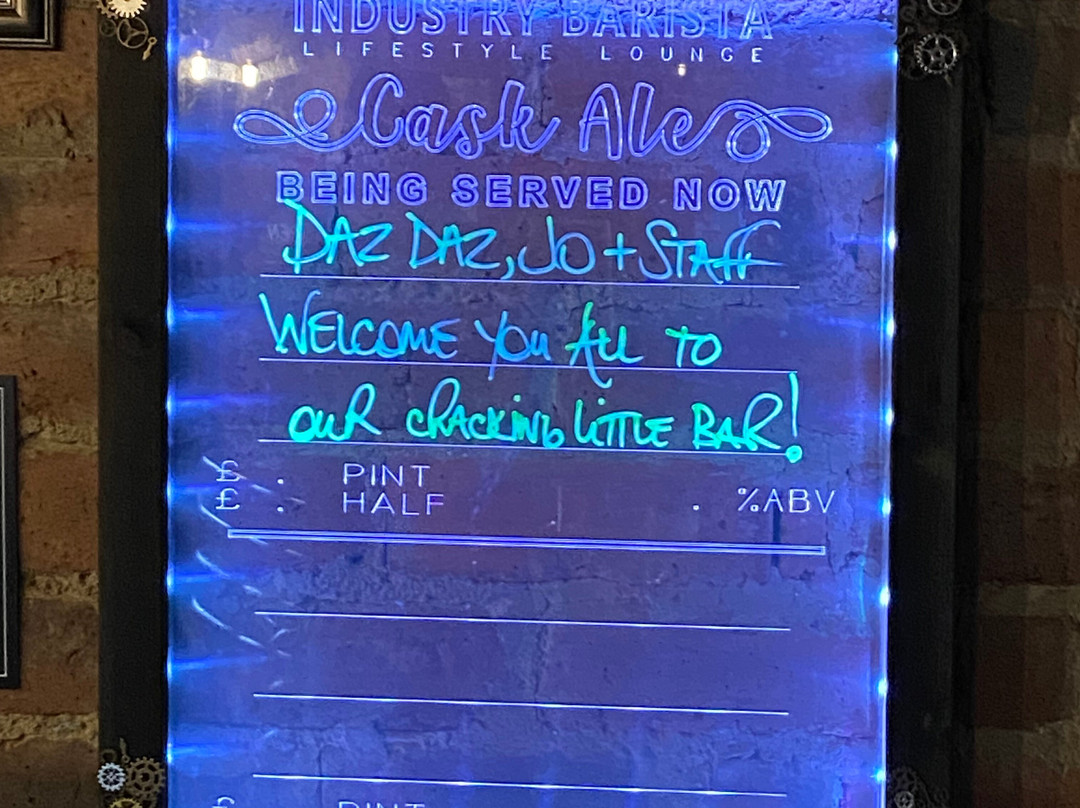 INDUSTRY BARISTA
LIFESTYLE LOUNGE
Cask Ale
BEING SERVED NOW
DAZ DAZ, JO + STAFF
WELCOME YOU ALL TO
OUR CRACKING LITTLE BAR!
£ . PINT
£ . HALF . %ABV
£ PINT